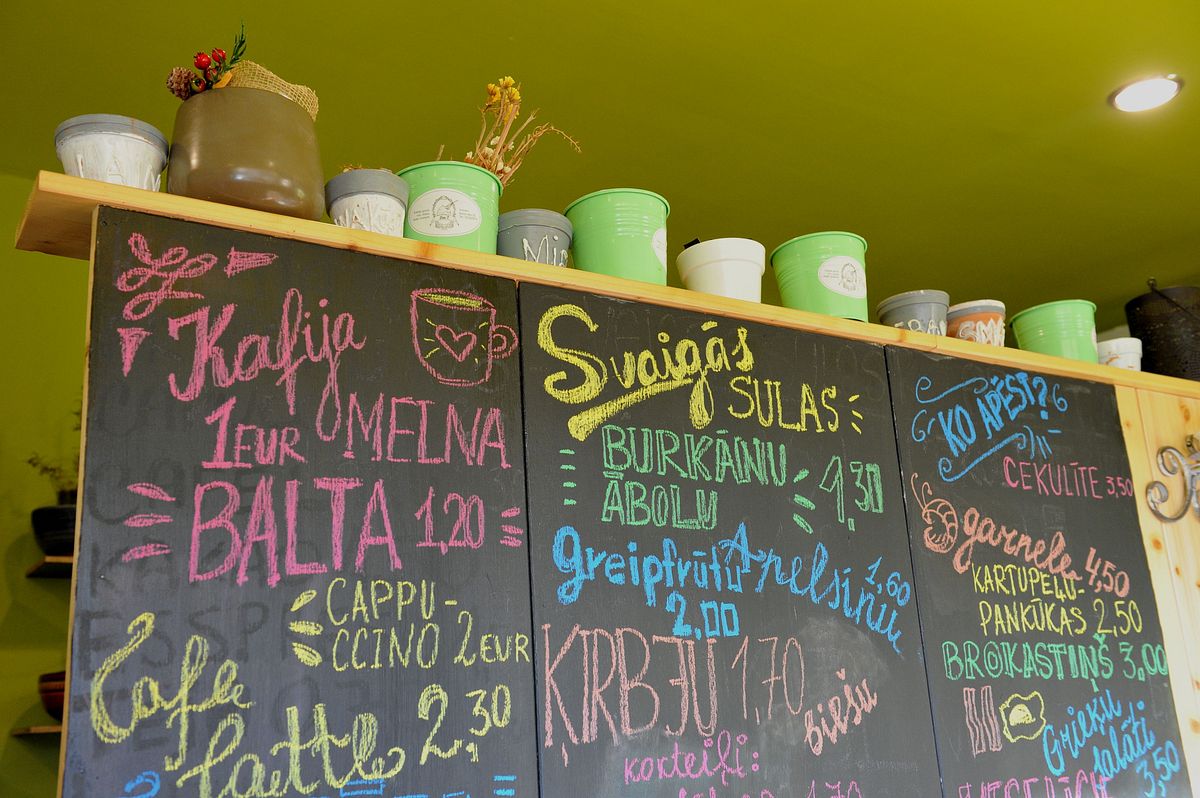 Kafija
1EUR MELNA
BALTA 1,20
CAPPU-
CCINO 2EUR
Cafe
latte 2,30
Svaigās
SULAS
BURKĀNU 1,30
ĀBOLU
greipfrūtu
2,00
Apelsīnu 1,60
ĶIRBJU 1,70
biešu
kokteiļi:
KO APĒST?
CEKULĪTE 3,50
garneles 4,50
KARTUPEĻU-
PANKŪKAS 2,50
BROKASTIŅŠ 3,00
Grieķu
salāti
3,50